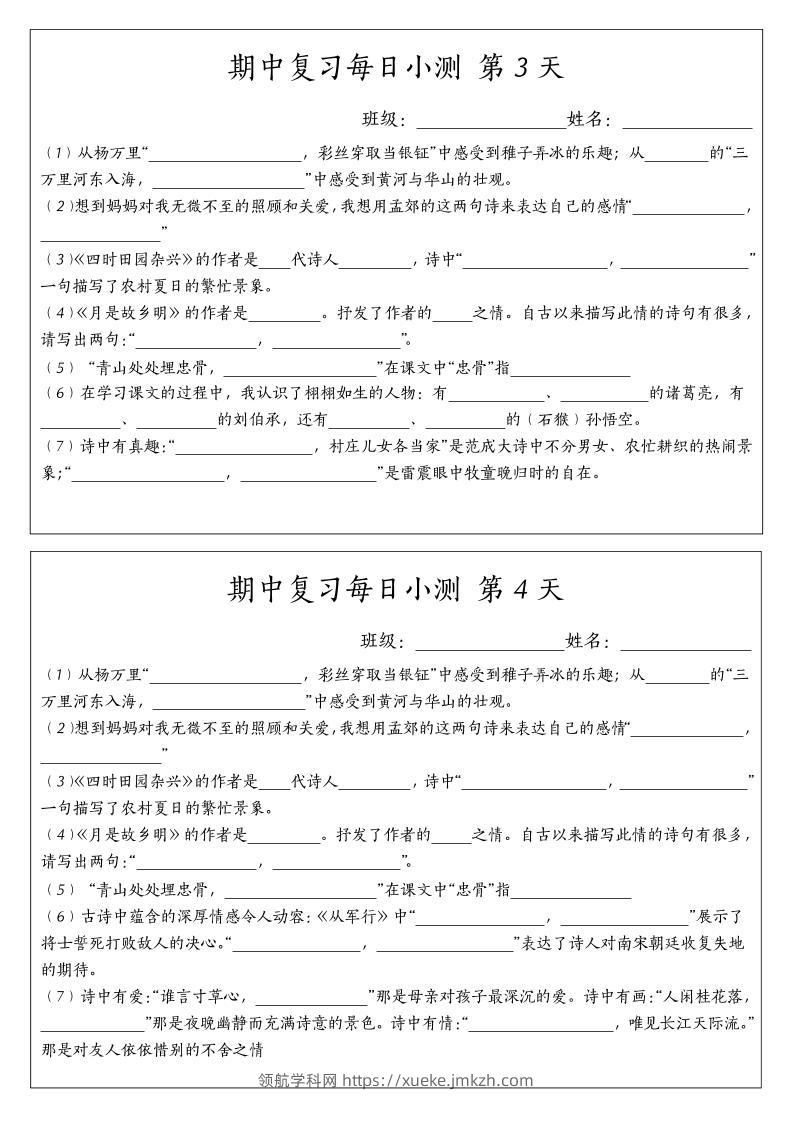 期中复习每日小测 第 3 天
班级：______________姓名：____________
（1）从杨万里“________________，彩丝穿取当银钲”中感受到稚子弄冰的乐趣；从_______的“三
万里河东入海，________________”中感受到黄河与华山的壮观。
（2）想到妈妈对我无微不至的照顾和关爱，我想用孟郊的这两句诗来表达自己的感情“____________，
_____________”
（3）《四时田园杂兴》的作者是____代诗人________，诗中“________________，______________”
一句描写了农村夏日的繁忙景象。
（4）《月是故乡明》的作者是________。抒发了作者的_____之情。自古以来描写此情的诗句有很多，
请写出两句：“_____________，______________”。
（5）“青山处处埋忠骨，________________”在课文中“忠骨”指_____________
（6）在学习课文的过程中，我认识了栩栩如生的人物：有__________、__________的诸葛亮，有
_________、_________的刘伯承，还有_________、_________的（石猴）孙悟空。
（7）诗中有真趣：“_______________，村庄儿女各当家”是范成大诗中不分男女、农忙耕织的热闹景
象；“_________________，_______________”是雷震眼中牧童晚归时的自在。
期中复习每日小测 第 4 天
班级：______________姓名：____________
（1）从杨万里“________________，彩丝穿取当银钲”中感受到稚子弄冰的乐趣；从_______的“三
万里河东入海，________________”中感受到黄河与华山的壮观。
（2）想到妈妈对我无微不至的照顾和关爱，我想用孟郊的这两句诗来表达自己的感情“____________，
_____________”
（3）《四时田园杂兴》的作者是____代诗人________，诗中“________________，______________”
一句描写了农村夏日的繁忙景象。
（4）《月是故乡明》的作者是________。抒发了作者的_____之情。自古以来描写此情的诗句有很多，
请写出两句：“_____________，______________”。
（5）“青山处处埋忠骨，________________”在课文中“忠骨”指_____________
（6）古诗中蕴含的深厚情感令人动容：《从军行》中“______________，______________”展示了
将士誓死打败敌人的决心。“______________，________________”表达了诗人对南宋朝廷收复失地
的期待。
（7）诗中有爱：“谁言寸草心，____________”那是母亲对孩子最深沉的爱。诗中有画：“人闲桂花落，
____________”那是夜晚幽静而充满诗意的景色。诗中有情：“________________，唯见长江天际流。”
那是对友人依依惜别的不舍之情
领航学科网 https://xueke.jmkzh.com